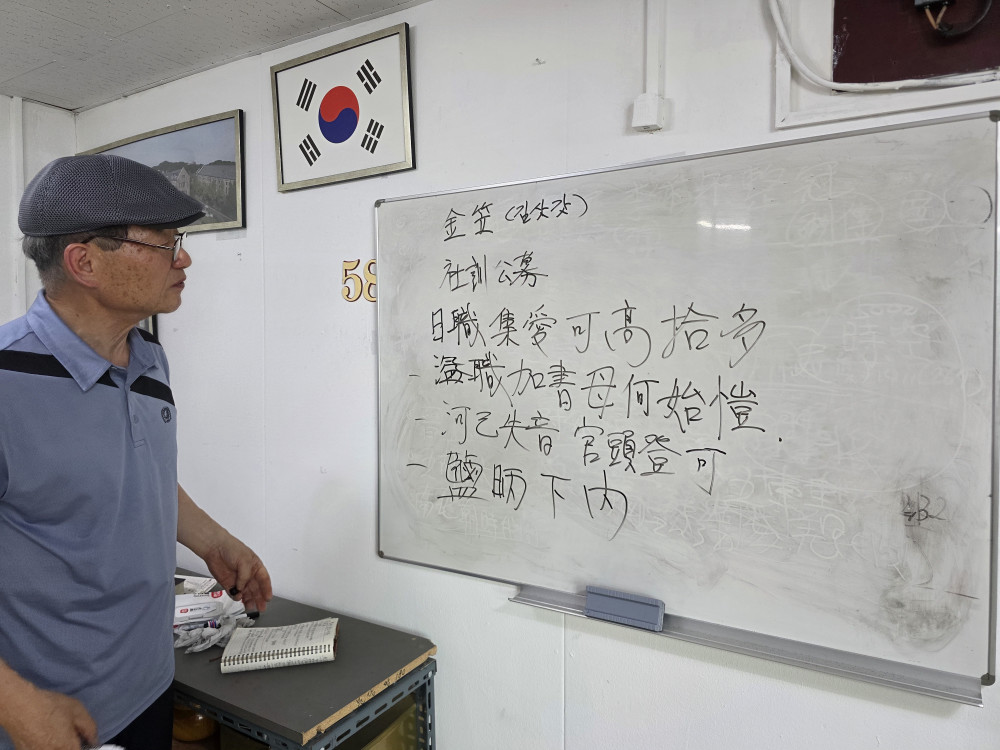 金笠 (김삿갓)
社訓公募
日職集愛可高拾多
- 溢職加書母何始愷.
- 河己失音 官頭登可
- 鹽昞下內
58